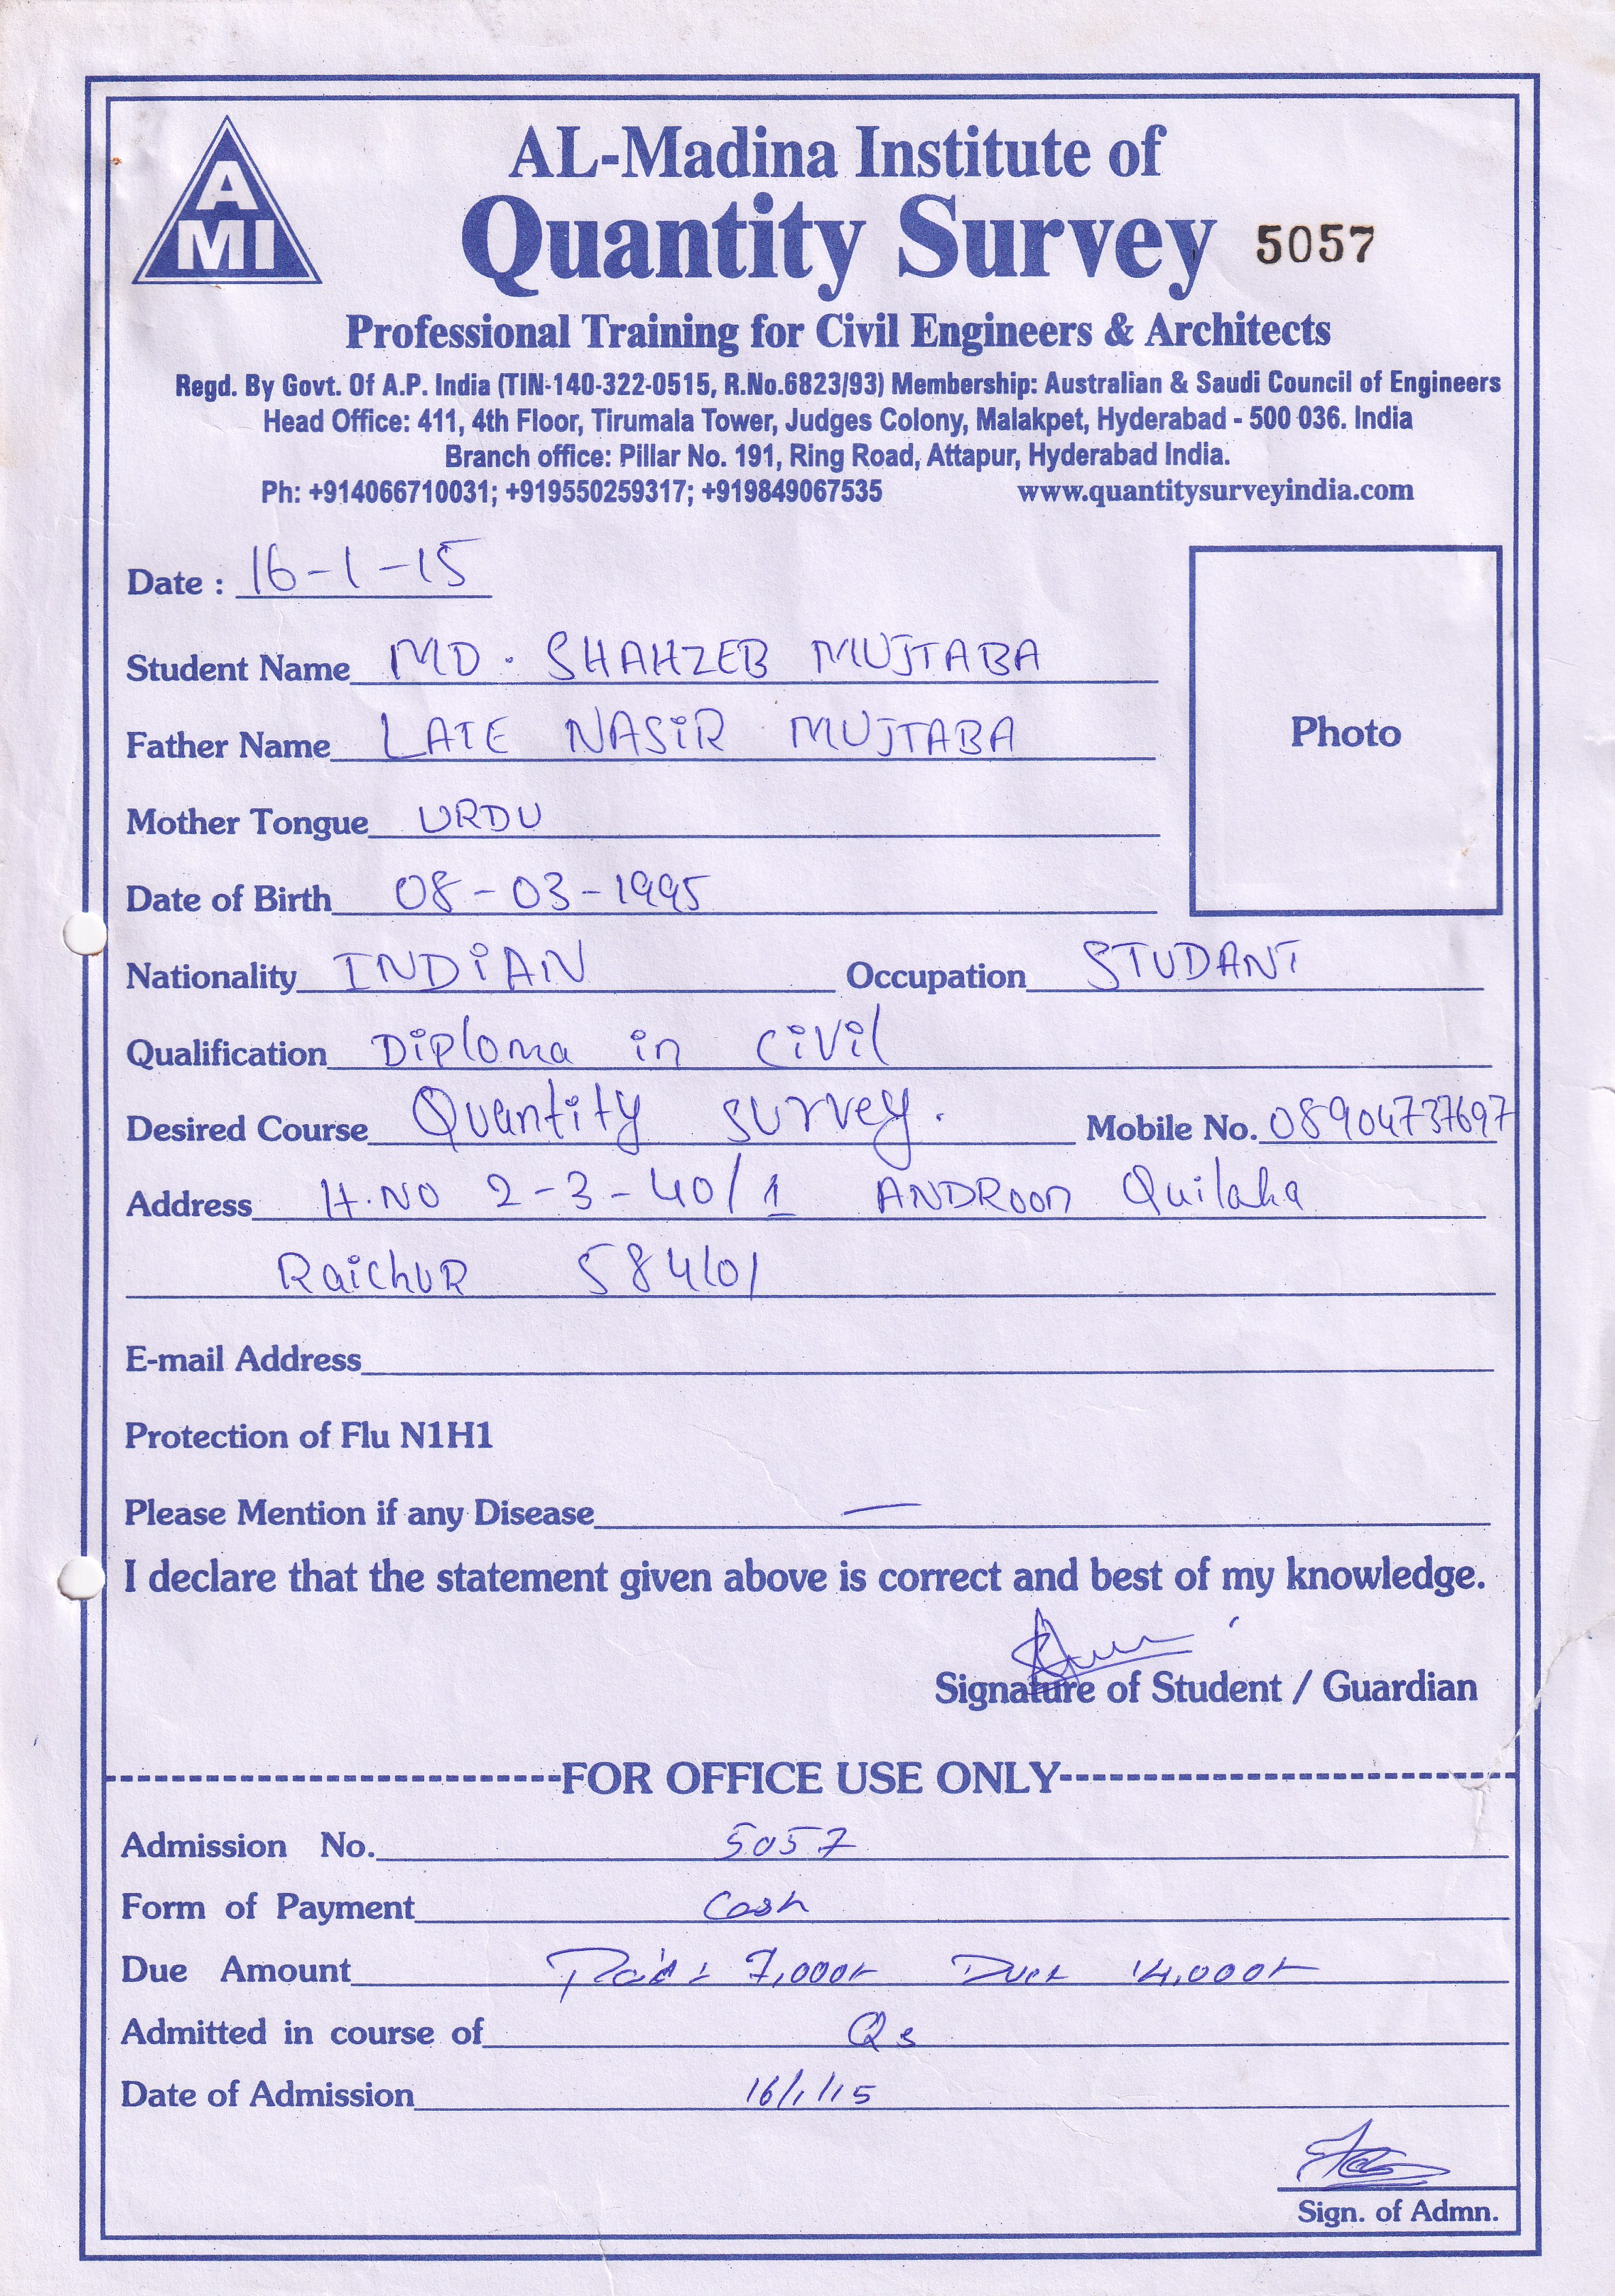 A
MI
AL-Madina Institute of
Quantity Survey 5057
Professional Training for Civil Engineers & Architects
Regd. By Govt. Of A.P. India (TIN-140-322-0515, R.No.6823/93) Membership: Australian & Saudi Council of Engineers
Head Office: 411, 4th Floor, Tirumala Tower, Judges Colony, Malakpet, Hyderabad - 500 036. India
Branch office: Pillar No. 191, Ring Road, Attapur, Hyderabad India.
Ph: +914066710031; +919550259317; +919849067535 www.quantitysurveyindia.com
Date : 16-1-15
Student Name MD. SHAHZEB MUJTABA
Father Name LATE NASiR MUJTABA
Photo
Mother Tongue URDU
Date of Birth 08-03-1995
Nationality INDiAN Occupation STUDANT
Qualification Diploma in CiVil
Desired Course Quantity survey. Mobile No. 08904737697
Address H.NO 2-3-40/1 ANDRoon Quilaha
RaichUR 584101
E-mail Address
Protection of Flu N1H1
Please Mention if any Disease —
I declare that the statement given above is correct and best of my knowledge.
Signature of Student / Guardian
FOR OFFICE USE ONLY
Admission No. 5057
Form of Payment Cash
Due Amount Paid: 7,000/- Due: 14,000/-
Admitted in course of Qs
Date of Admission 16/1/15
Sign. of Admn.